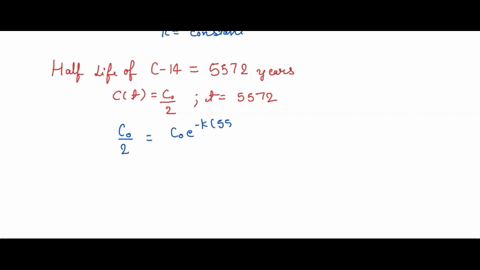 K = constant
Half Life of C-14 = 5572 years
C(t) = C₀/2 ; t = 5572
C₀/2 = C₀e^-K(55